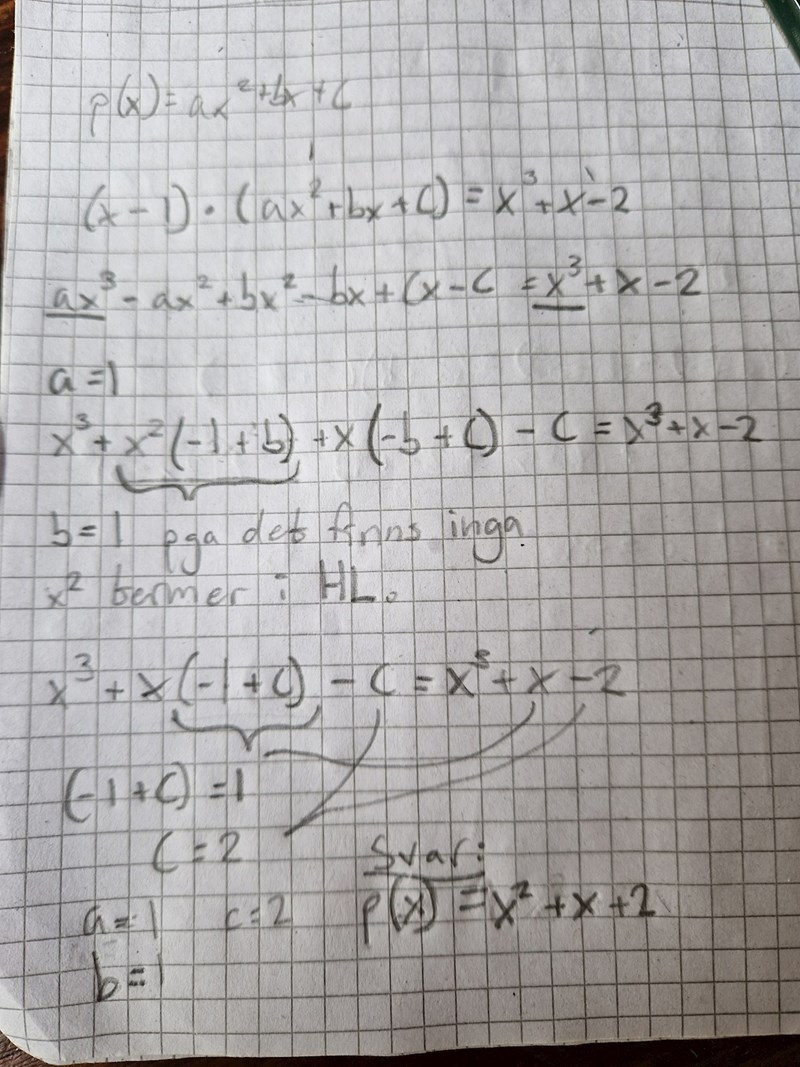 p(x) = ax²+bx+c
(x-1)·(ax²+bx+c) = x³+x-2
ax³-ax²+bx²-bx+cx-c = x³+x-2
a=1
x³+x²(-1+b)+x(-b+c)-c = x³+x-2
b=1 pga det finns inga
x² termer i HL.
x³+x(-1+c)-c = x³+x-2
(-1+c)=1
c=2
Svar:
a=1 c=2 p(x)=x²+x+2
b=1